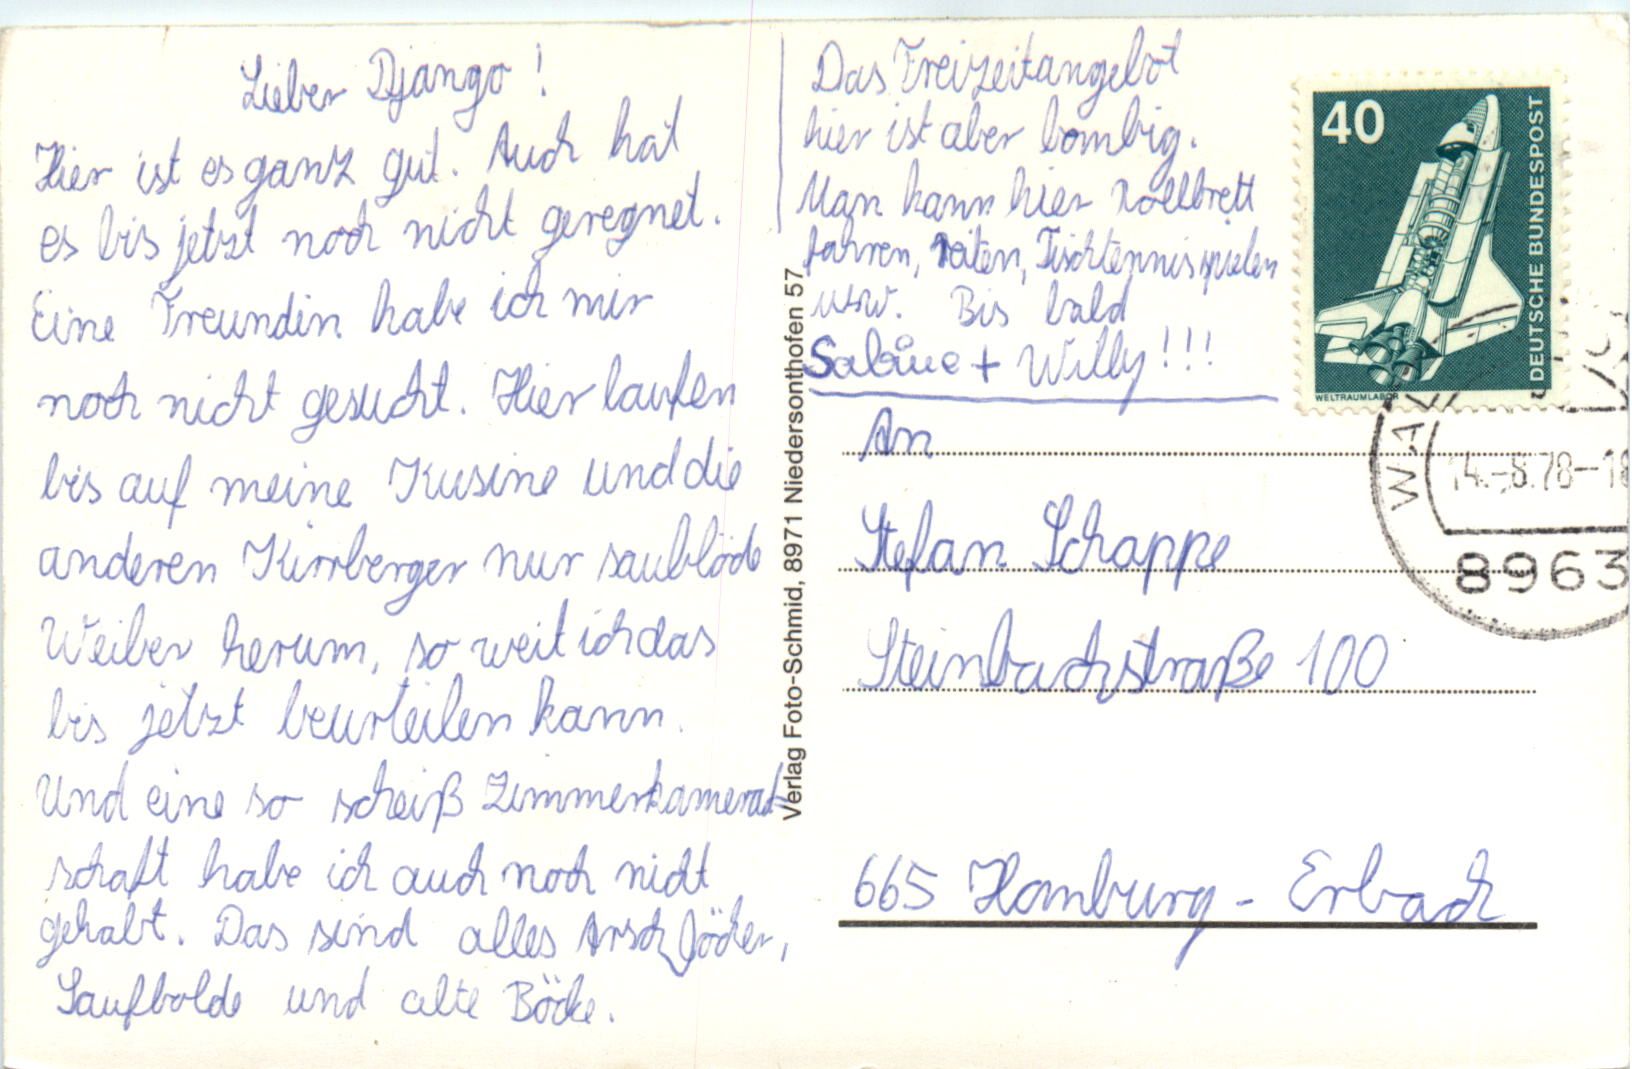 Lieber Django!
Hier ist es ganz gut. Auch hat
es bis jetzt noch nicht geregnet.
Eine Freundin habe ich mir
noch nicht gesucht. Hier laufen
bis auf meine Kusine und die
anderen Kirrberger nur saublöde
Weiber herum, so weit ich das
bis jetzt beurteilen kann.
Und eine so scheiß Zimmerkamerad-
schaft habe ich auch noch nicht
gehabt. Das sind alles Arschlöcher,
Saufbolde und alte Böcke.
Das Freizeitangebot
hier ist aber bombig.
Man kann hier Rollbrett
fahren, reiten, Tischtennis spielen
usw. Bis bald
Sabine + Willy!!!
Verlag Foto-Schmid, 8971 Niedersonthofen 57
40
DEUTSCHE BUNDESPOST
WELTRAUMLABOR
WAL
14.-8.78-18
8963
An
Stefan Schappe
Steinbachstraße 100
665 Homburg - Erbach